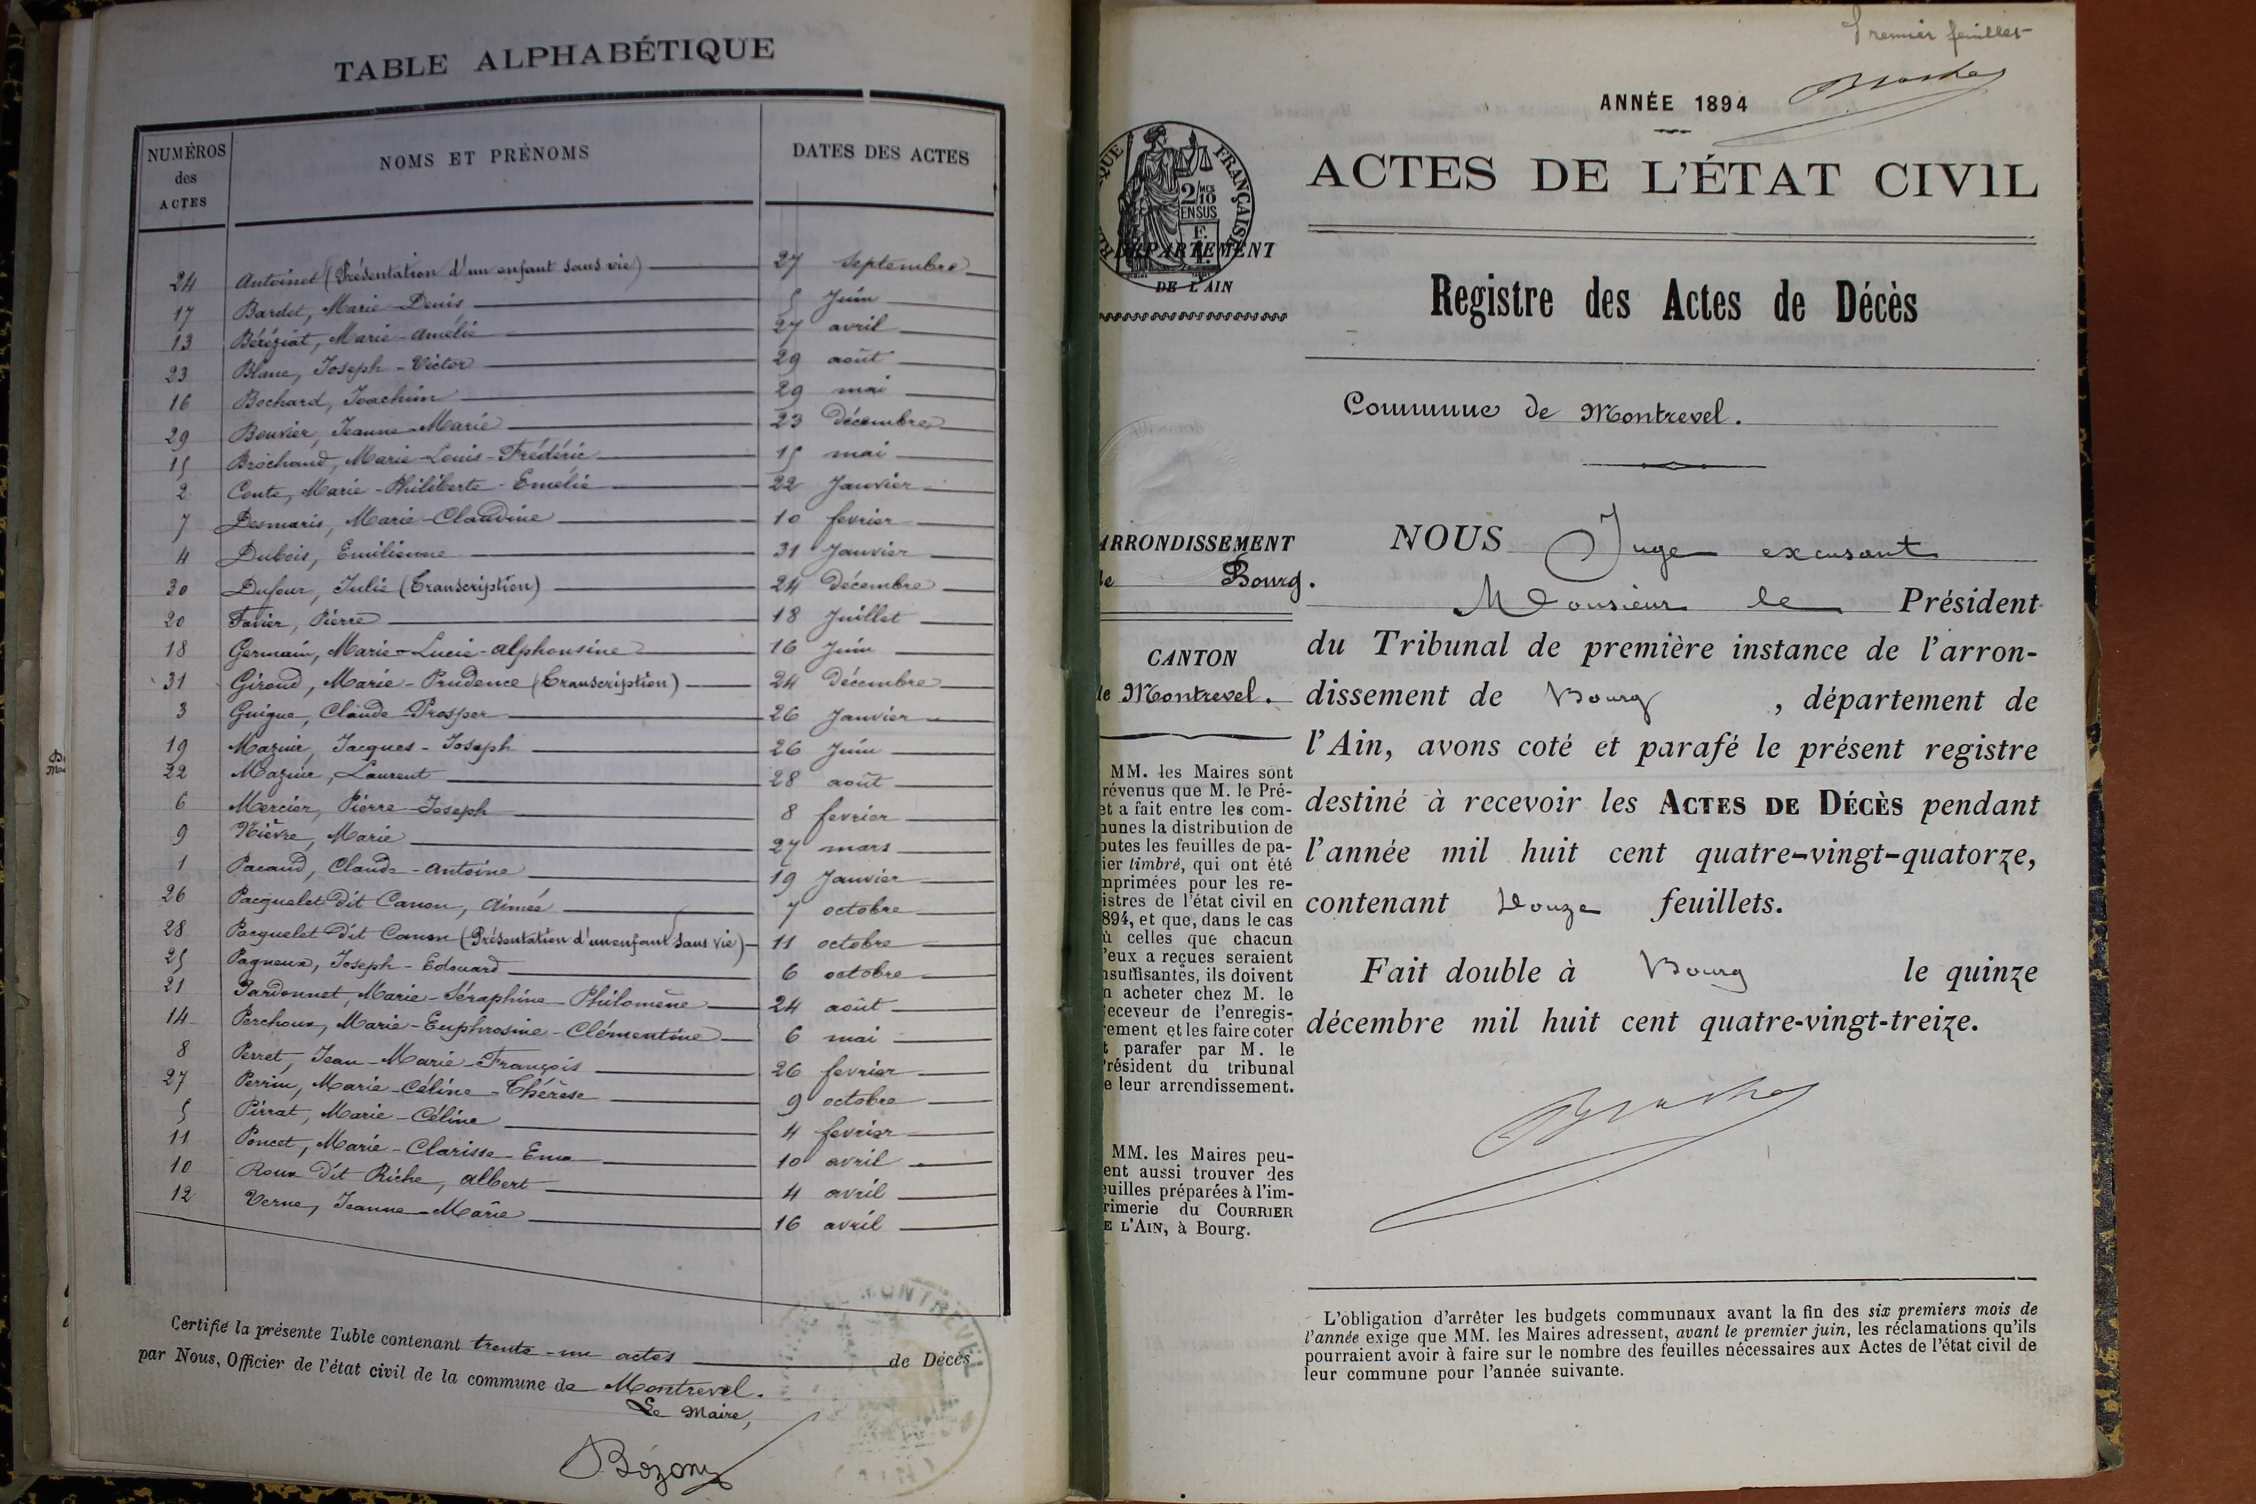 TABLE ALPHABÉTIQUE
NUMÉROS des ACTES | NOMS ET PRÉNOMS | DATES DES ACTES
24 Antoinet (Présentation d'un enfant sans vie) 27 Septembre
17 Bardet, Marie-Denis 5 Juin
13 Béréziat, Marie-Amélie 27 avril
23 Blanc, Joseph-Victor 29 août
16 Bochard, Joachim 29 mai
29 Bouvier, Jeanne-Marie 23 Décembre
15 Brochand, Marie-Louis-Frédéric 15 mai
2 Conte, Marie-Philiberte-Emélie 22 Janvier
7 Desmaris, Marie-Claudine 10 fevrier
4 Dubois, Emilienne 31 Janvier
30 Dufour, Julie (Transcription) 24 Décembre
20 Favier, Pierre 18 Juillet
18 Germain, Marie-Lucie-Alphonsine 16 Juin
31 Giroud, Marie-Prudence (Transcription) 24 Décembre
3 Guigue, Claude-Prosper 26 Janvier
19 Mazuir, Jacques-Joseph 26 Juin
22 Mazuir, Laurent 28 août
6 Mercier, Pierre-Joseph 8 fevrier
9 Nièvre, Marie 27 mars
1 Pacaud, Claude-Antoine 19 Janvier
26 Pacquelet dit Canon, Aimée 7 octobre
28 Pacquelet dit Canon (Présentation d'un enfant sans vie) 11 octobre
25 Pagneux, Joseph-Edouard 6 octobre
21 Pardonnet, Marie-Séraphine-Philomène 24 août
14 Perchoux, Marie-Euphrosine-Clémentine 6 mai
8 Perret, Jean-Marie-François 26 fevrier
27 Perrin, Marie-Céline-Thérèse 9 octobre
5 Pirrat, Marie-Céline 4 fevrier
11 Poncet, Marie-Clarisse-Ema 10 avril
10 Roux dit Riche, Albert 4 avril
12 Verne, Jeanne-Marie 16 avril
Certifié la présente Table contenant trente-un actes de Décès
par Nous, Officier de l'état civil de la commune de Montrevel.
Le Maire,
Bozon
MONTREVEL
(AIN)
Premier feuillet
ANNÉE 1894
ACTES DE L'ÉTAT CIVIL
FRANÇAISE
2/10
EN SUS
DÉPARTEMENT
DE L'AIN
Registre des Actes de Décès
Commune de Montrevel.
ARRONDISSEMENT
de Bourg.
CANTON
de Montrevel.
NOUS Juge excusant
Monsieur le Président
du Tribunal de première instance de l'arron-
dissement de Bourg, département de
l'Ain, avons coté et parafé le présent registre
destiné à recevoir les ACTES DE DÉCÈS pendant
l'année mil huit cent quatre-vingt-quatorze,
contenant Douze feuillets.
Fait double à Bourg le quinze
décembre mil huit cent quatre-vingt-treize.
MM. les Maires sont
révenus que M. le Pré-
et a fait entre les com-
unes la distribution de
outes les feuilles de pa-
ier timbré, qui ont été
mprimées pour les re-
istres de l'état civil en
894, et que, dans le cas
ù celles que chacun
'eux a reçues seraient
nsuffisantes, ils doivent
n acheter chez M. le
eceveur de l'enregis-
rement et les faire coter
t parafer par M. le
résident du tribunal
e leur arrondissement.
MM. les Maires peu-
ent aussi trouver des
euilles préparées à l'im-
rimerie du COURRIER
E L'AIN, à Bourg.
L'obligation d'arrêter les budgets communaux avant la fin des six premiers mois de
l'année exige que MM. les Maires adressent, avant le premier juin, les réclamations qu'ils
pourraient avoir à faire sur le nombre des feuilles nécessaires aux Actes de l'état civil de
leur commune pour l'année suivante.